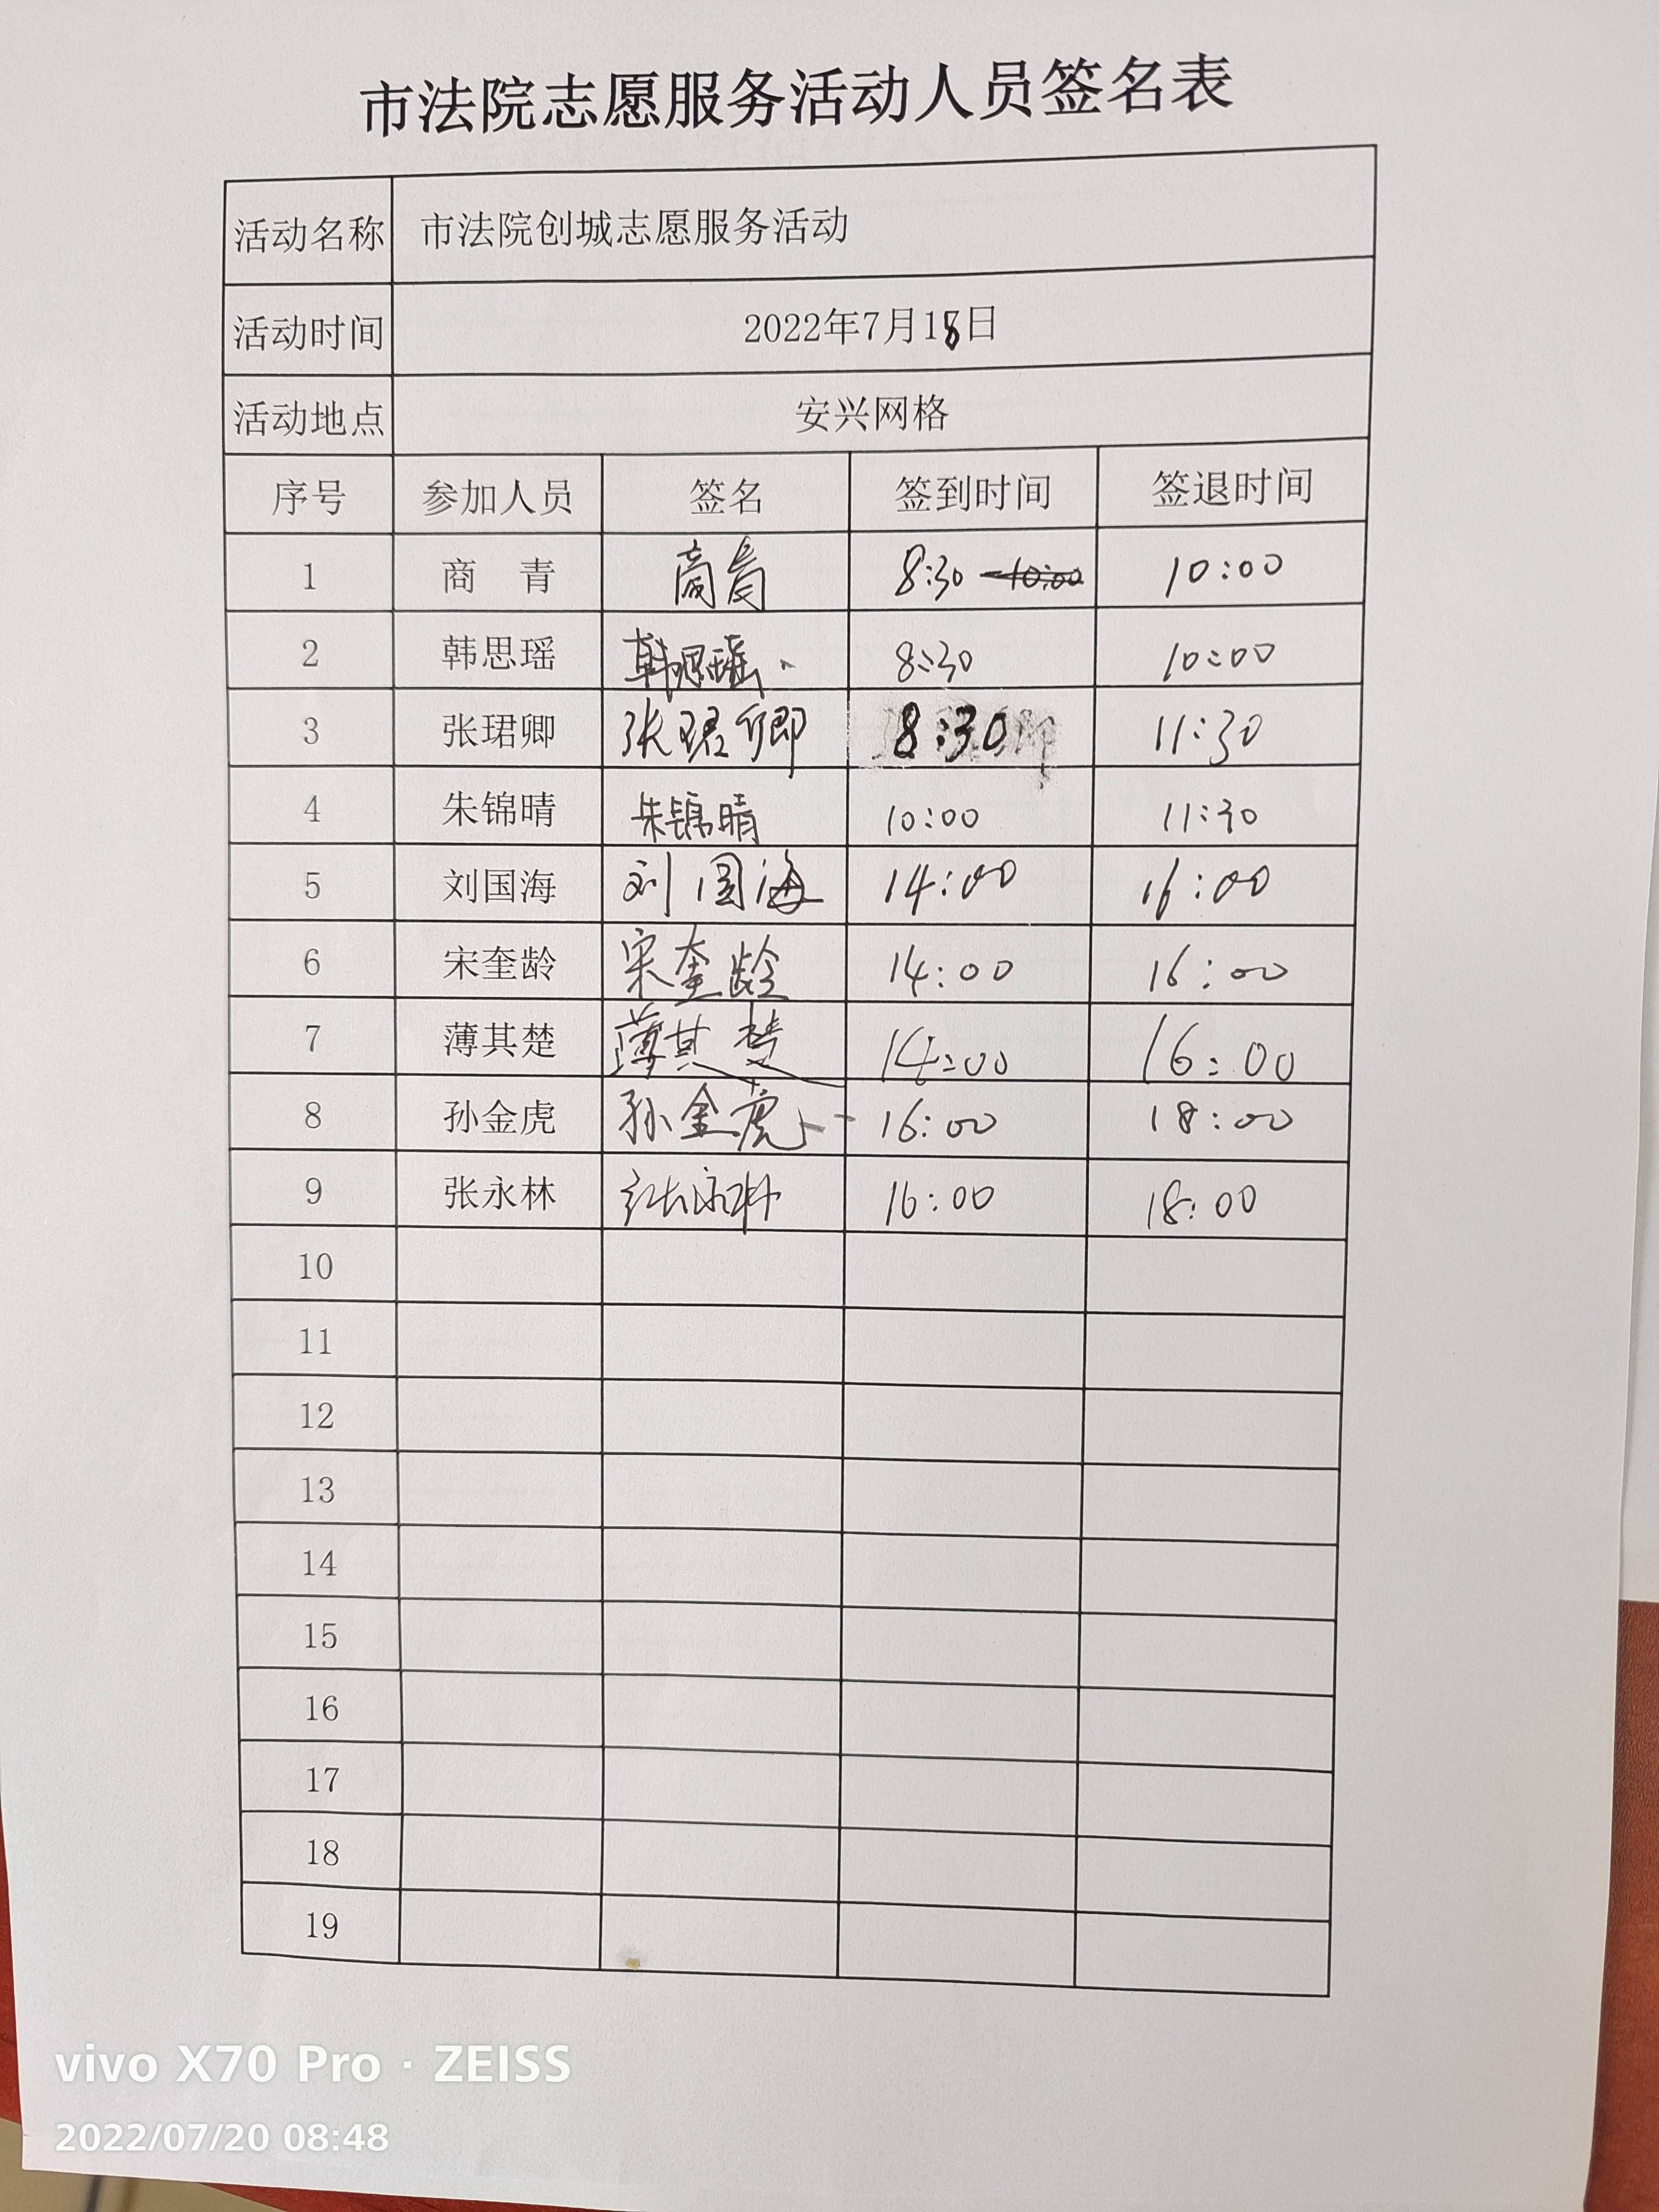 市法院志愿服务活动人员签名表
活动名称 市法院创城志愿服务活动
活动时间 2022年7月18日
活动地点 安兴网格
序号 参加人员 签名 签到时间 签退时间
1 商 青 商青 8:30 10:00 10:00
2 韩思瑶 韩思瑶 8:30 10:00
3 张珺卿 张珺卿 8:30 11:30
4 朱锦晴 朱锦晴 10:00 11:30
5 刘国海 刘国海 14:00 16:00
6 宋奎龄 宋奎龄 14:00 16:00
7 薄其楚 薄其楚 14:00 16:00
8 孙金虎 孙金虎 16:00 18:00
9 张永林 张永林 16:00 18:00
10
11
12
13
14
15
16
17
18
19
vivo X70 Pro · ZEISS
2022/07/20 08:48